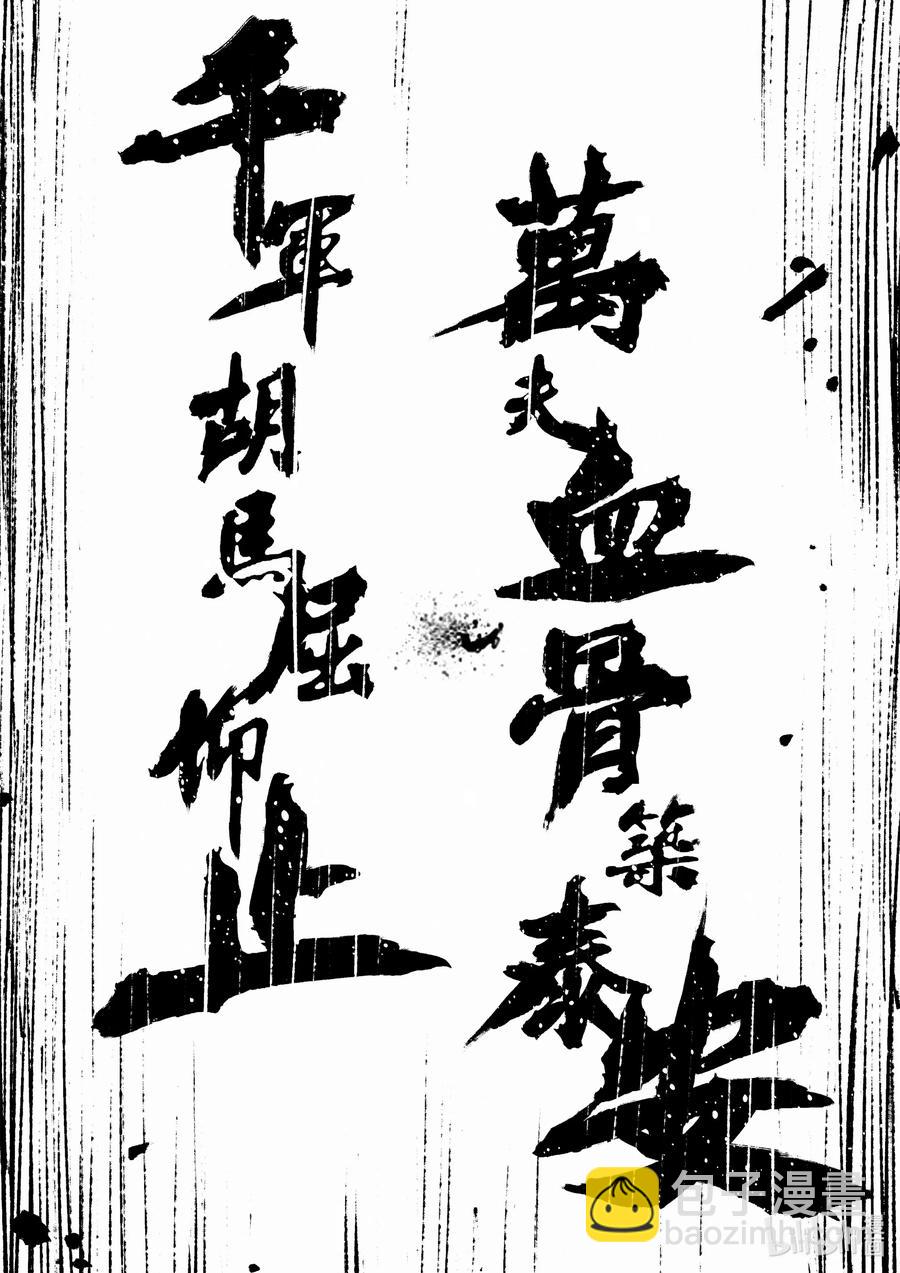 萬夫血骨築泰安
千軍胡馬屈仰止
包子漫畫
baozimh.com